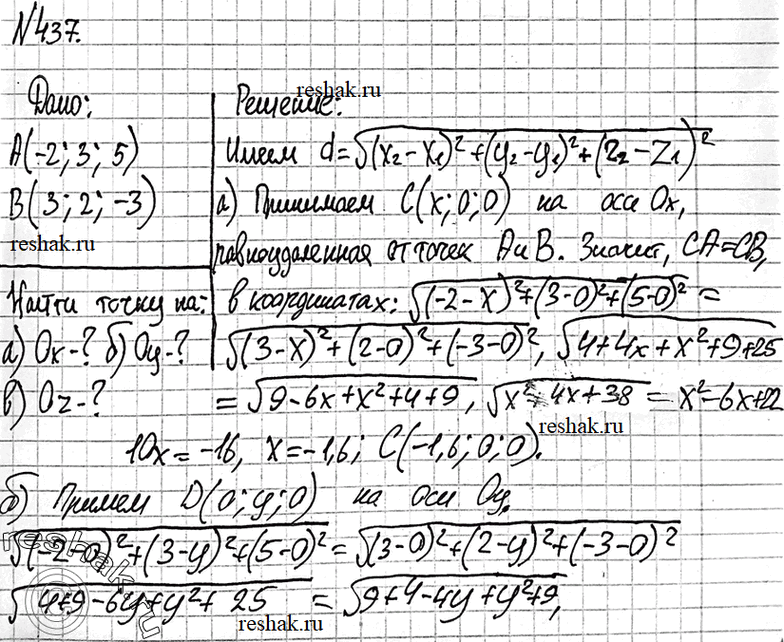 №437.
reshak.ru
Дано: Решение:
A(-2; 3; 5) Имеем d=√(x₂-x₁)²+(y₂-y₁)²+(z₂-z₁)²
B(3; 2; -3) а) Принимаем C(x; 0; 0) на оси Ox,
reshak.ru равноудаленная от точек A и B. Значит, CA=CB,
Найти точку на: в координатах: √(-2-x)²+(3-0)²+(5-0)² =
а) Ox-? б) Oy-? √(3-x)²+(2-0)²+(-3-0)², √4+4x+x²+9+25
в) Oz-? = √9-6x+x²+4+9, √x²+4x+38 = x²-6x+22
reshak.ru
10x=-16, x=-1,6; C(-1,6; 0; 0).
б) Примем D(0; y; 0) на оси Oy.
√(-2-0)²+(3-y)²+(5-0)² = √(3-0)²+(2-y)²+(-3-0)²
reshak.ru
√4+9-6y+y²+25 = √9+4-4y+y²+9,
reshak.ru